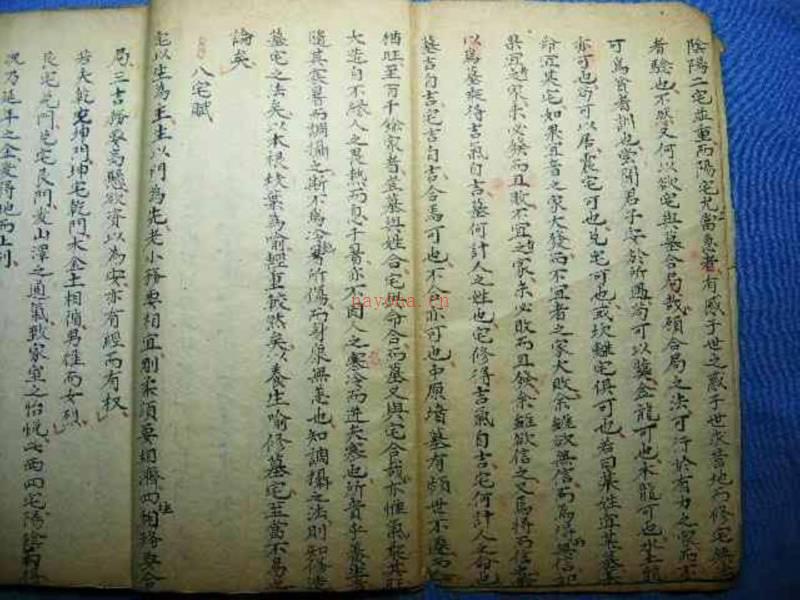 陰陽二宅並重而陽宅尤當急者有感于世之惑于世求吉地而修宅無
者驗也不然又何以欲宅與墓合局哉頋合局之法可行於有力之家而不
可為貧者訓也嘗聞君子安於所遇苟可以葬金龍可也木龍可也坐
亦可也苟可以居震宅可也兌宅可也或坎離宅俱可也若曰某姓宜某墓某
命宜某宅如果宜者之家大發而不宜者之家大敗余雖欲無信而烏得無信
果宜之家未必發而且敗不宜之家未必敗而且發余雖欲信之又烏得而信
以為墓擬得吉氣自吉墓何計人之姓也宅修得吉氣自吉宅何計人之命也
墓吉自吉宅吉自吉合焉可也不合亦可也中原墳墓有頗世不遷而
猶旺至百千餘家者豈墓與姓合宅與命合而墓又與宅合哉亦惟氣聚其
大造自不緣人之畏熱而息于暑亦不因人之寒冷而進夫寒也所貴乎養生者
隨其寒暑而調攝之斯不為冷暑所傷而身泉無恙也知調攝之法則知修造
墓宅之法矣以本根枝葉為喻輕重較然矣以養生喻修墓宅至當不易之
論矣
八宅賦
宅以坐為主主以門為先老少務要相宜別柔須要相濟四相務取合
局三吉務要高懸欲資以為安亦有經而有权
若夫乾宅坤門坤宅乾門大金土相値男惟而女烈
艮宅兌門兌宅艮門爰山澤之通氣致家室之怡悦此西四宅陽陰
況乃延年之金爰得地而上列
hayota.cn